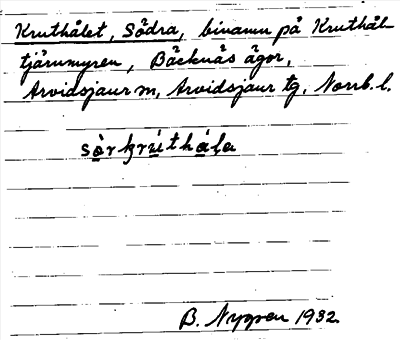 Kruthålet, Södra, binamn på Kruthål-
tjärnmyren, Bäcknäs ägor,
Arvidsjaur sn, Arvidsjaur tg, Norrb. l.
B. Nygren 1932